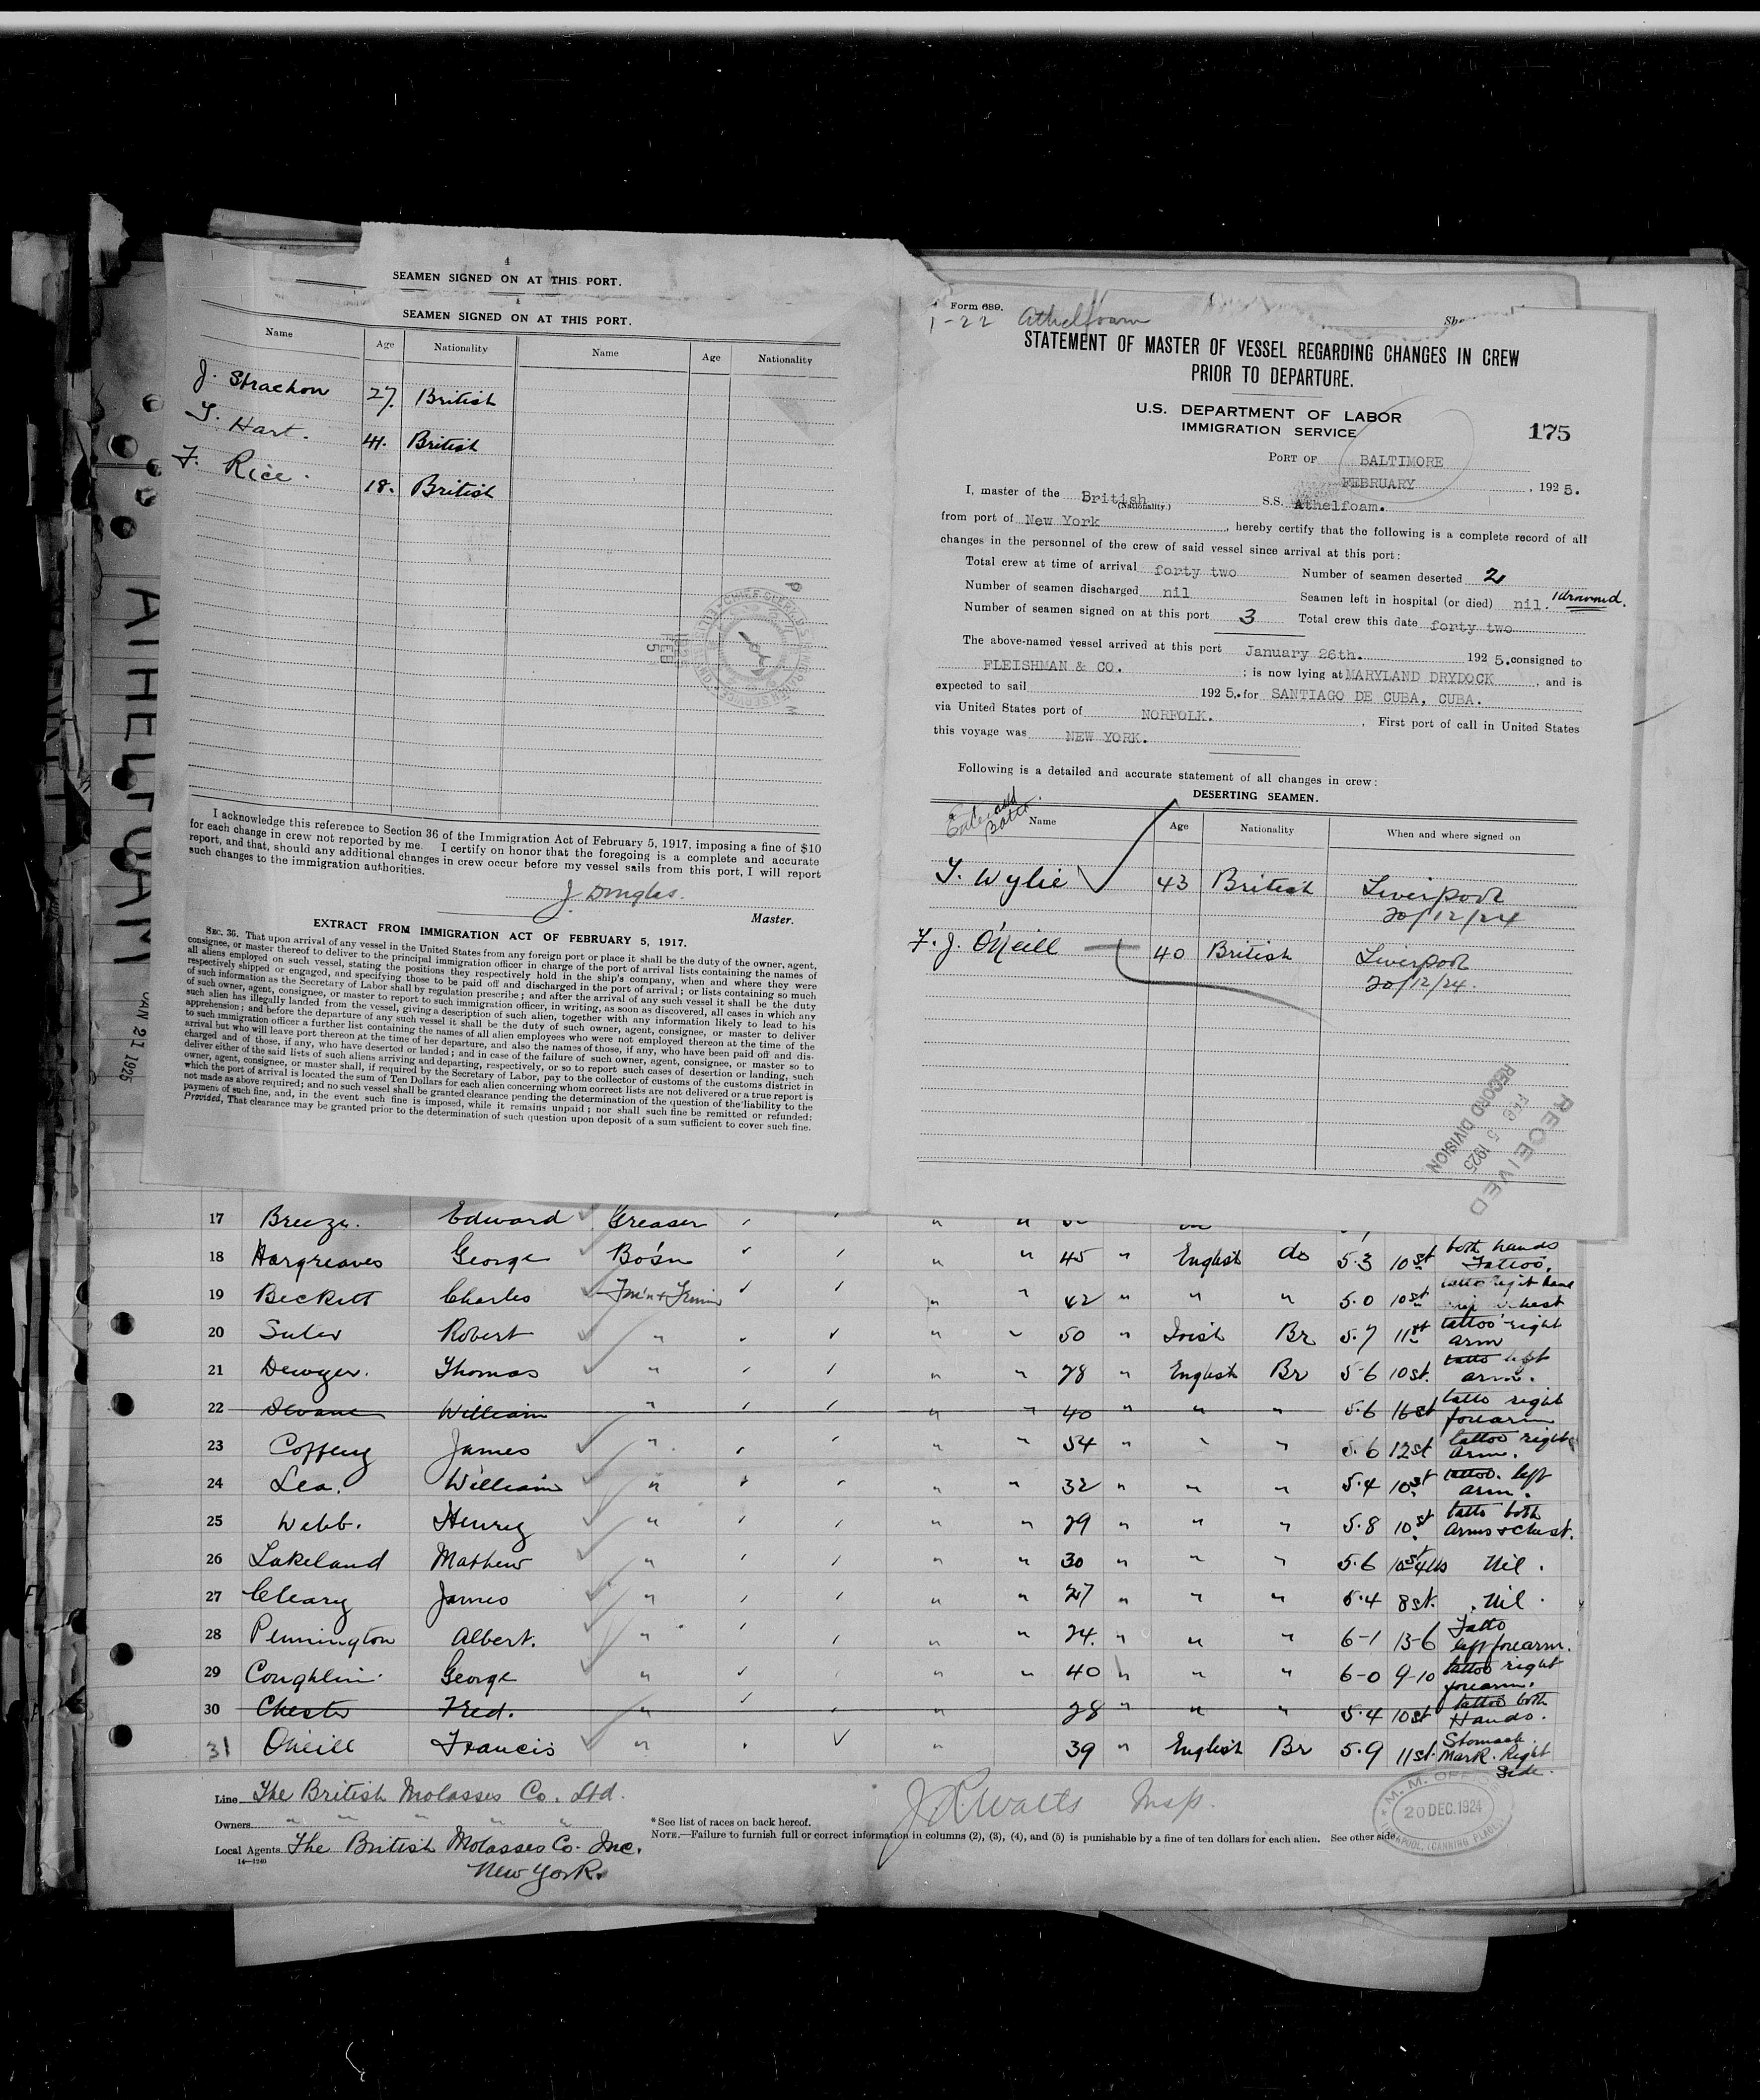 4
SEAMEN SIGNED ON AT THIS PORT.
4
SEAMEN SIGNED ON AT THIS PORT.
Name Age Nationality Name Age Nationality
J. Strachon 27. British
T. Hart. 41. British
F. Rice. 18. British
I acknowledge this reference to Section 36 of the Immigration Act of February 5, 1917, imposing a fine of $10
for each change in crew not reported by me. I certify on honor that the foregoing is a complete and accurate
report, and that, should any additional changes in crew occur before my vessel sails from this port, I will report
such changes to the immigration authorities.
J. Douglas.
Master.
EXTRACT FROM IMMIGRATION ACT OF FEBRUARY 5, 1917.
SEC. 36. That upon arrival of any vessel in the United States from any foreign port or place it shall be the duty of the owner, agent,
consignee, or master thereof to deliver to the principal immigration officer in charge of the port of arrival lists containing the names of
all aliens employed on such vessel, stating the positions they respectively hold in the ship's company, when and where they were
respectively shipped or engaged, and specifying those to be paid off and discharged in the port of arrival; or lists containing so much
of such information as the Secretary of Labor shall by regulation prescribe; and after the arrival of any such vessel it shall be the duty
of such owner, agent, consignee, or master to report to such immigration officer, in writing, as soon as discovered, all cases in which any
such alien has illegally landed from the vessel, giving a description of such alien, together with any information likely to lead to his
apprehension; and before the departure of any such vessel it shall be the duty of such owner, agent, consignee, or master to deliver
to such immigration officer a further list containing the names of all alien employees who were not employed thereon at the time of the
arrival but who will leave port thereon at the time of her departure, and also the names of those, if any, who have been paid off and dis-
charged and of those, if any, who have deserted or landed; and in case of the failure of such owner, agent, consignee, or master so to
deliver either of the said lists of such aliens arriving and departing, respectively, or so to report such cases of desertion or landing, such
owner, agent, consignee, or master shall, if required by the Secretary of Labor, pay to the collector of customs of the customs district in
which the port of arrival is located the sum of Ten Dollars for each alien concerning whom correct lists are not delivered or a true report is
not made as above required; and no such vessel shall be granted clearance pending the determination of the question of the liability to the
payment of such fine, and, in the event such fine is imposed, while it remains unpaid; nor shall such fine be remitted or refunded:
Provided, That clearance may be granted prior to the determination of such question upon deposit of a sum sufficient to cover such fine.
ATHELFOAM
JAN 21 1925
Form 689.
1-22 Athelfoam
STATEMENT OF MASTER OF VESSEL REGARDING CHANGES IN CREW
PRIOR TO DEPARTURE.
U.S. DEPARTMENT OF LABOR
IMMIGRATION SERVICE
175
PORT OF BALTIMORE
FEBRUARY , 1925.
I, master of the British S.S. Athelfoam.
(Nationality.)
from port of New York , hereby certify that the following is a complete record of all
changes in the personnel of the crew of said vessel since arrival at this port:
Total crew at time of arrival forty two Number of seamen deserted 2
Number of seamen discharged nil Seamen left in hospital (or died) nil. 1 drowned.
Number of seamen signed on at this port 3 Total crew this date forty two
The above-named vessel arrived at this port January 26th. 1925. consigned to
FLEISHMAN & CO. ; is now lying at MARYLAND DRYDOCK , and is
expected to sail 1925. for SANTIAGO DE CUBA, CUBA.
via United States port of NORFOLK. . First port of call in United States
this voyage was NEW YORK.
Following is a detailed and accurate statement of all changes in crew:
DESERTING SEAMEN.
Name Age Nationality When and where signed on
T. Wylie 43 British Liverpool
20/12/24
F. J. O'Neill 40 British Liverpool
20/12/24.
RECEIVED
FEB 5 1925
RECORD DIVISION
17 Breeze. Edward Greaser
18 Hargreaves George Bo'sn " " 45 " English do 5.3 10st both hands Tattoo.
19 Beckett Charles " " 42 " " " 5.0 10st right chest
20 Suler Robert " " " 50 " Irish Br 5.7 11st tattoo right arm
21 Dewyer. Thomas " " " 28 " English Br 5-6 10st. tatto left arm.
22 William " " " 40 " " " 5.6 tatto right forearm
23 James " " " 54 " " " 5.6 12st tattoo right arm.
24 Lea. William " " " 32 " " " 5.4 10st tattoo. left arm.
25 Webb. Henry " " " 29 " " " 5.8 10st tatto both Arms & Chest.
26 Lakeland Mathew " " " 30 " " " 5.6 10st 4lbs Nil.
27 Cleary James " " " 27 " " " 5.4 8st. Nil.
28 Pennington Albert. " " " 24. " " " 6-1 13-6 Tatto left forearm.
29 Coughlin. George " " " 40 " " " 6-0 9-10 tattoo right forearm.
30 Chester Fred. " " 28 " " " 5.4 10st tattoo both Hands.
31 O'Neill Francis " " 39 " English Br 5.9 11st. Stomach Mark. Right Side.
Line The British Molasses Co. Ltd.
Owners " " " " "
Local Agents The British Molasses Co. Inc.
14-1240
New York.
*See list of races on back hereof.
NOTE.—Failure to furnish full or correct information in columns (2), (3), (4), and (5) is punishable by a fine of ten dollars for each alien. See other side.
Watts Insp.
M. M. OFFICE
20 DEC. 1924
LIVERPOOL, (CANNING PLACE)